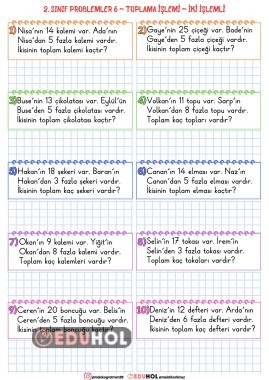 2. SINIF PROBLEMLER 6 - TOPLAMA İŞLEMİ - İKİ İŞLEMLİ
1) Nisa'nın 14 kalemi var. Ada'nın
Nisa'dan 5 fazla kalemi vardır.
İkisinin toplam kalemi kaçtır?
2) Gaye'nin 25 çiçeği var. Bade'nin
Gaye'den 5 fazla çiçeği vardır.
İkisinin toplam çiçeği kaçtır?
3) Buse'nin 13 çikolatası var. Eylül'ün
Buse'den 5 fazla çikolatası vardır.
İkisinin toplam kaç çikolatası vardır?
4) Volkan'ın 11 topu var. Sarp'ın
Volkan'dan 8 fazla topu vardır.
Toplam kaç topları vardır?
5) Hakan'ın 18 şekeri var. Baran'ın
Hakan'dan 3 fazla şekeri vardır.
İkisinin toplam kaç şekeri vardır?
6) Canan'ın 14 elması var. Naz'ın
Canan'dan 5 fazla elması vardır.
İkisinin toplam elması kaçtır?
7) Okan'ın 9 kalemi var. Yiğit'in
Okan'dan 8 fazla kalemi vardır.
Toplam kaç kalemleri vardır?
8) Selin'in 17 tokası var. İrem'in
Selin'den 3 fazla tokası vardır.
Toplam kaç tokaları vardır?
9) Ceren'in 20 boncuğu var. Belis'in
Ceren'den 5 fazla boncuğu vardır.
İkisinin toplam boncuğu kaçtır?
10) Deniz'in 12 defteri var. Arda'nın
Deniz'den 6 fazla defteri vardır.
İkisinin toplam kaç defteri vardır?
EDUHOL
EDUHOL